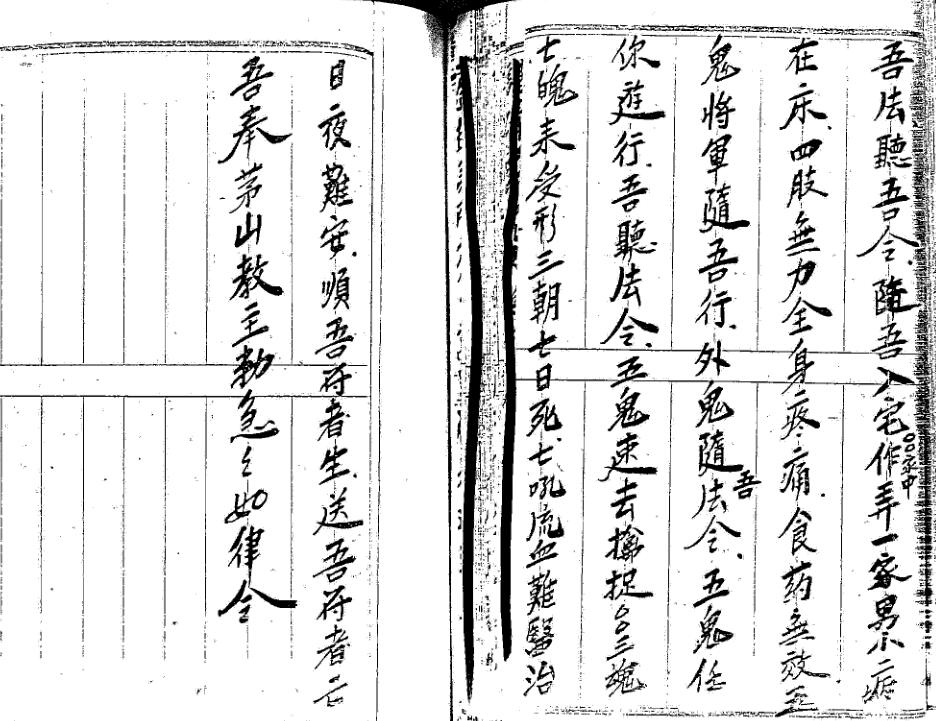 吾法聽吾令隨吾入宅作弄一家男小症
○○家中
在床四肢無力全身疼痛食药無效五
鬼將軍隨吾行外鬼隨吾法令五鬼任
你遊行吾聽法令五鬼速去擒捉○○三魂
七魄来受形三朝七日死七吼流血難醫治
日夜難安順吾符者生送吾符者亡
吾奉茅山教主勅急〻如律令